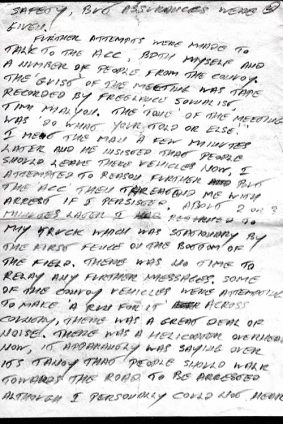 SAFETY, BUT ASSURANCES WERE
GIVEN.
FURTHER ATTEMPTS WERE MADE TO
TALK TO THE ACC, BOTH MYSELF AND
A NUMBER OF PEOPLE FROM THE CONVOY.
THE 'GUIST' OF THE MEETING WAS TAPE
RECORDED BY FREELANCE JOURNALIST,
TIM MALYON. THE 'TONE' OF THE MEETING
WAS 'DO WHAT YOUR TOLD OR ELSE.'
I MET THE MAN A FEW MINUTES
LATER AND HE INSISTED THAT PEOPLE
SHOULD LEAVE THERE VEHICLES NOW. I
ATTEMPTED TO REASON FURTHER BUT
THE ACC THEN THREATENED ME WITH
ARREST IF I PERSISTED. ABOUT 2 OR 3
MINUTES LATER I RETURNED TO
MY TRUCK WHICH WAS STATIONARY BY
THE FIRST FENCE ON THE BOTTOM OF
THE FIELD. THERE WAS NO TIME TO
RELAY ANY FURTHER MESSAGES, SOME
OF THE CONVOY VEHICLES WERE ATTEMPTING
TO MAKE A RUN FOR IT ACROSS
COUNTRY, THERE WAS A GREAT DEAL OF
NOISE. THERE WAS A HELICOPTER OVERHEAD
NOW, IT APPARENTLY WAS SAYING OVER
ITS TANOY THAT PEOPLE SHOULD WALK
TOWARDS THE ROAD TO BE ARRESTED
ALTHOUGH I PERSONALLY COULD NOT HEAR